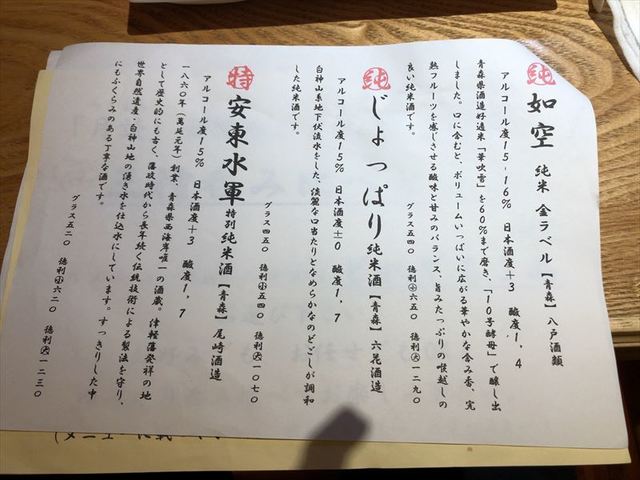 純 如空 純米 金ラベル【青森】八戸酒類
アルコール度15~16% 日本酒度+3 酸度1,4
青森県酒造好適米「華吹雪」を60%まで磨き、「10号酵母」で醸し出
しました。口に含むと、ボリュームいっぱいに広がる華やかな含み香、完
熟フルーツを感じさせる酸味と甘みのバランス、旨みたっぷりの喉越しの
良い純米酒です。
グラス五四〇 徳利小六五〇 徳利大一二九〇
純 じょっぱり 純米酒【青森】六花酒造
アルコール度15% 日本酒度±0 酸度1,7
白神山系地下伏流水をした、淡麗な口当たりとなめらかなのどごしが調和
した純米酒です。
グラス四五〇 徳利小五四〇 徳利大一〇七〇
特 安東水軍 特別純米酒【青森】尾崎酒造
アルコール度15% 日本酒度+3 酸度1,7
一八六〇年(萬延元年)創業、青森県西海岸唯一の酒蔵。津軽藩発祥の地
として歴史的にも古く、藩政時代から長年続く伝統技術による製法を守り、
世界自然遺産・白神山地の湧き水を仕込水にしています。すっきりした中
にもふくらみのある丁寧な酒です。
グラス五二〇 徳利小六二〇 徳利大一二三〇